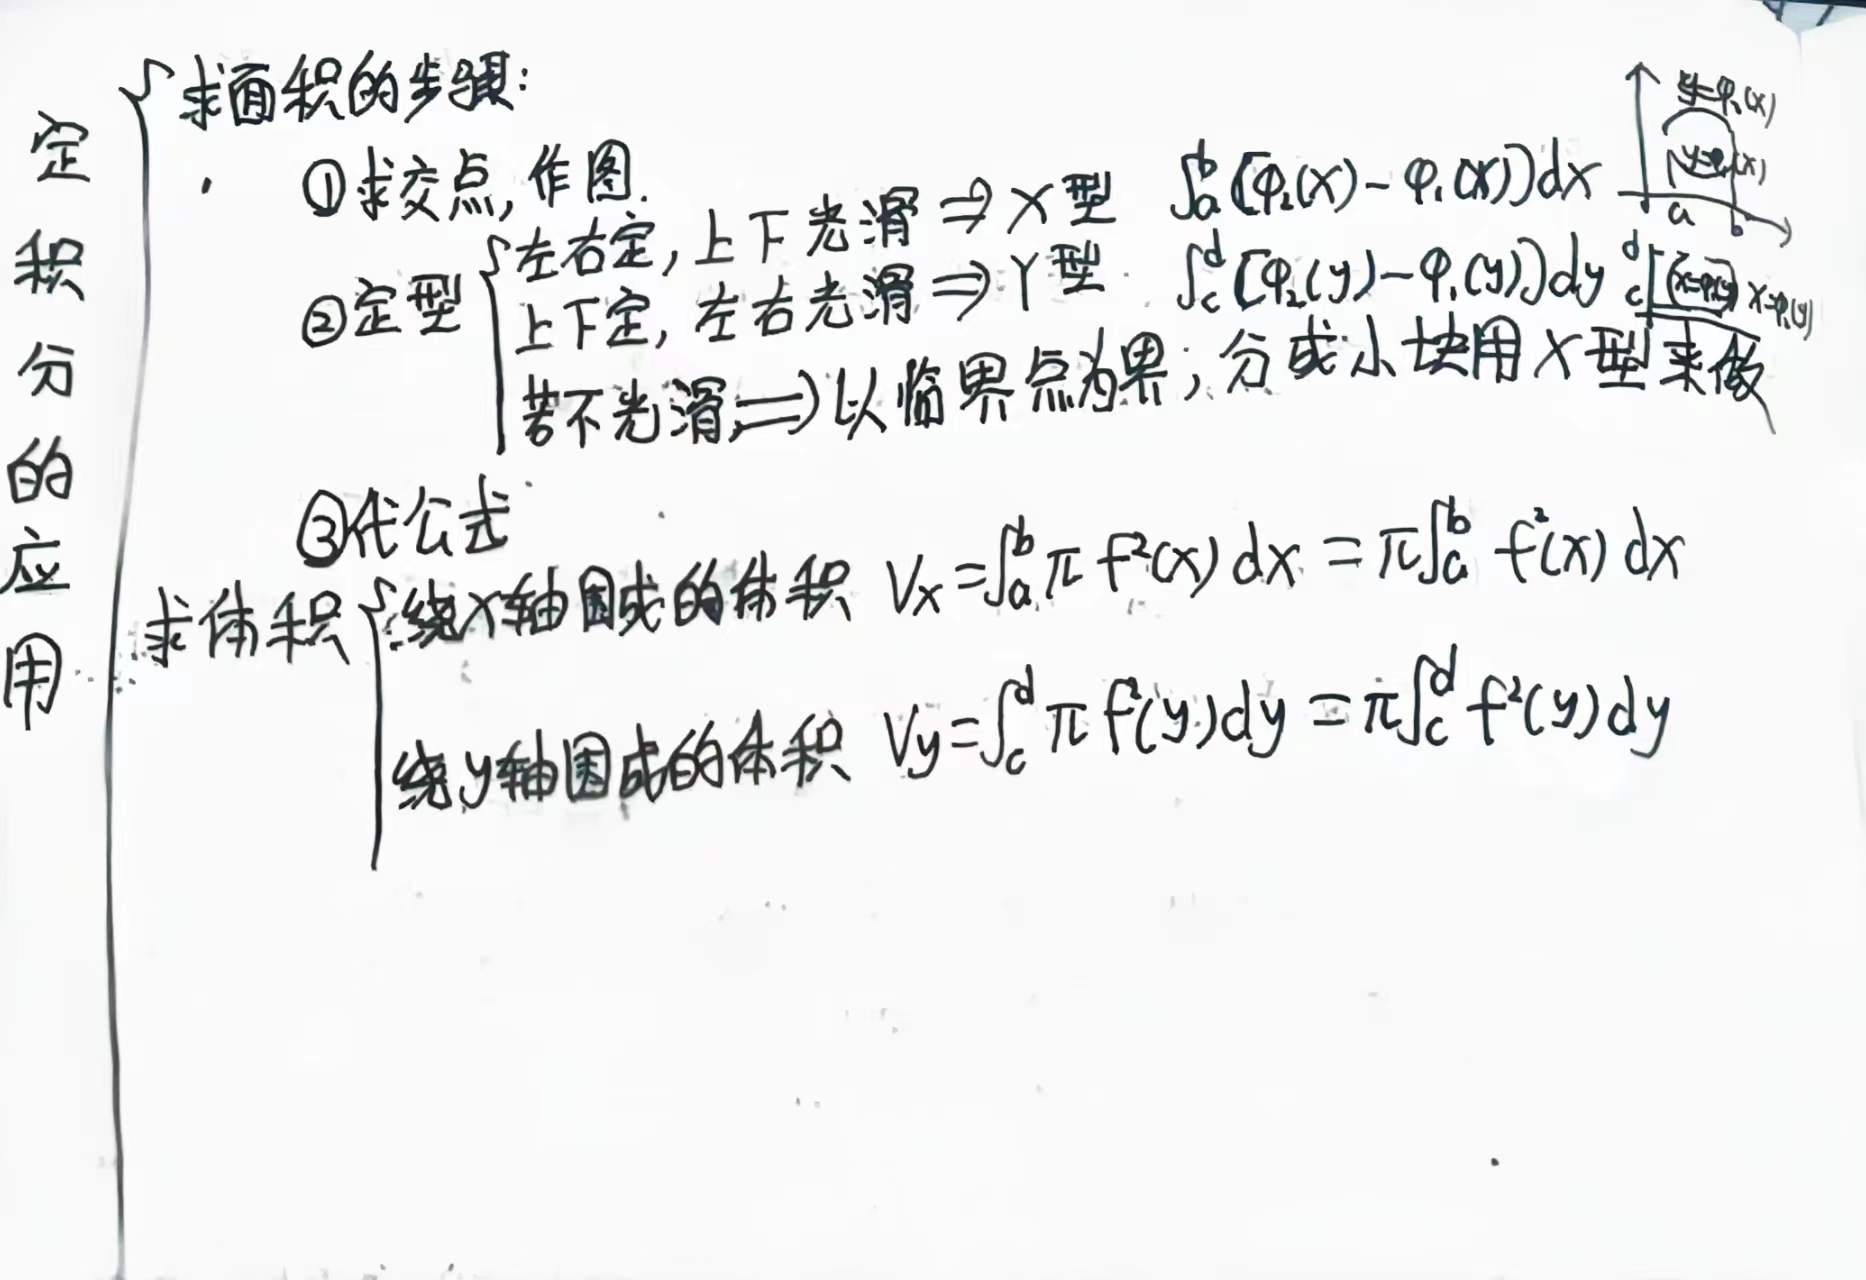 定积分的应用
求面积的步骤:
①求交点,作图.
②定型
左右定,上下光滑⇒X型 ∫ₐᵇ[φ₂(x)-φ₁(x)]dx
上下定,左右光滑⇒Y型 ∫_c^d[φ₂(y)-φ₁(y)]dy
若不光滑⇒以临界点为界,分成小块用X型来做
③代公式
求体积
绕x轴围成的体积 Vx=∫ₐᵇπf²(x)dx=π∫ₐᵇf²(x)dx
绕y轴围成的体积 Vy=∫_c^dπf²(y)dy=π∫_c^df²(y)dy
a
b
d
c